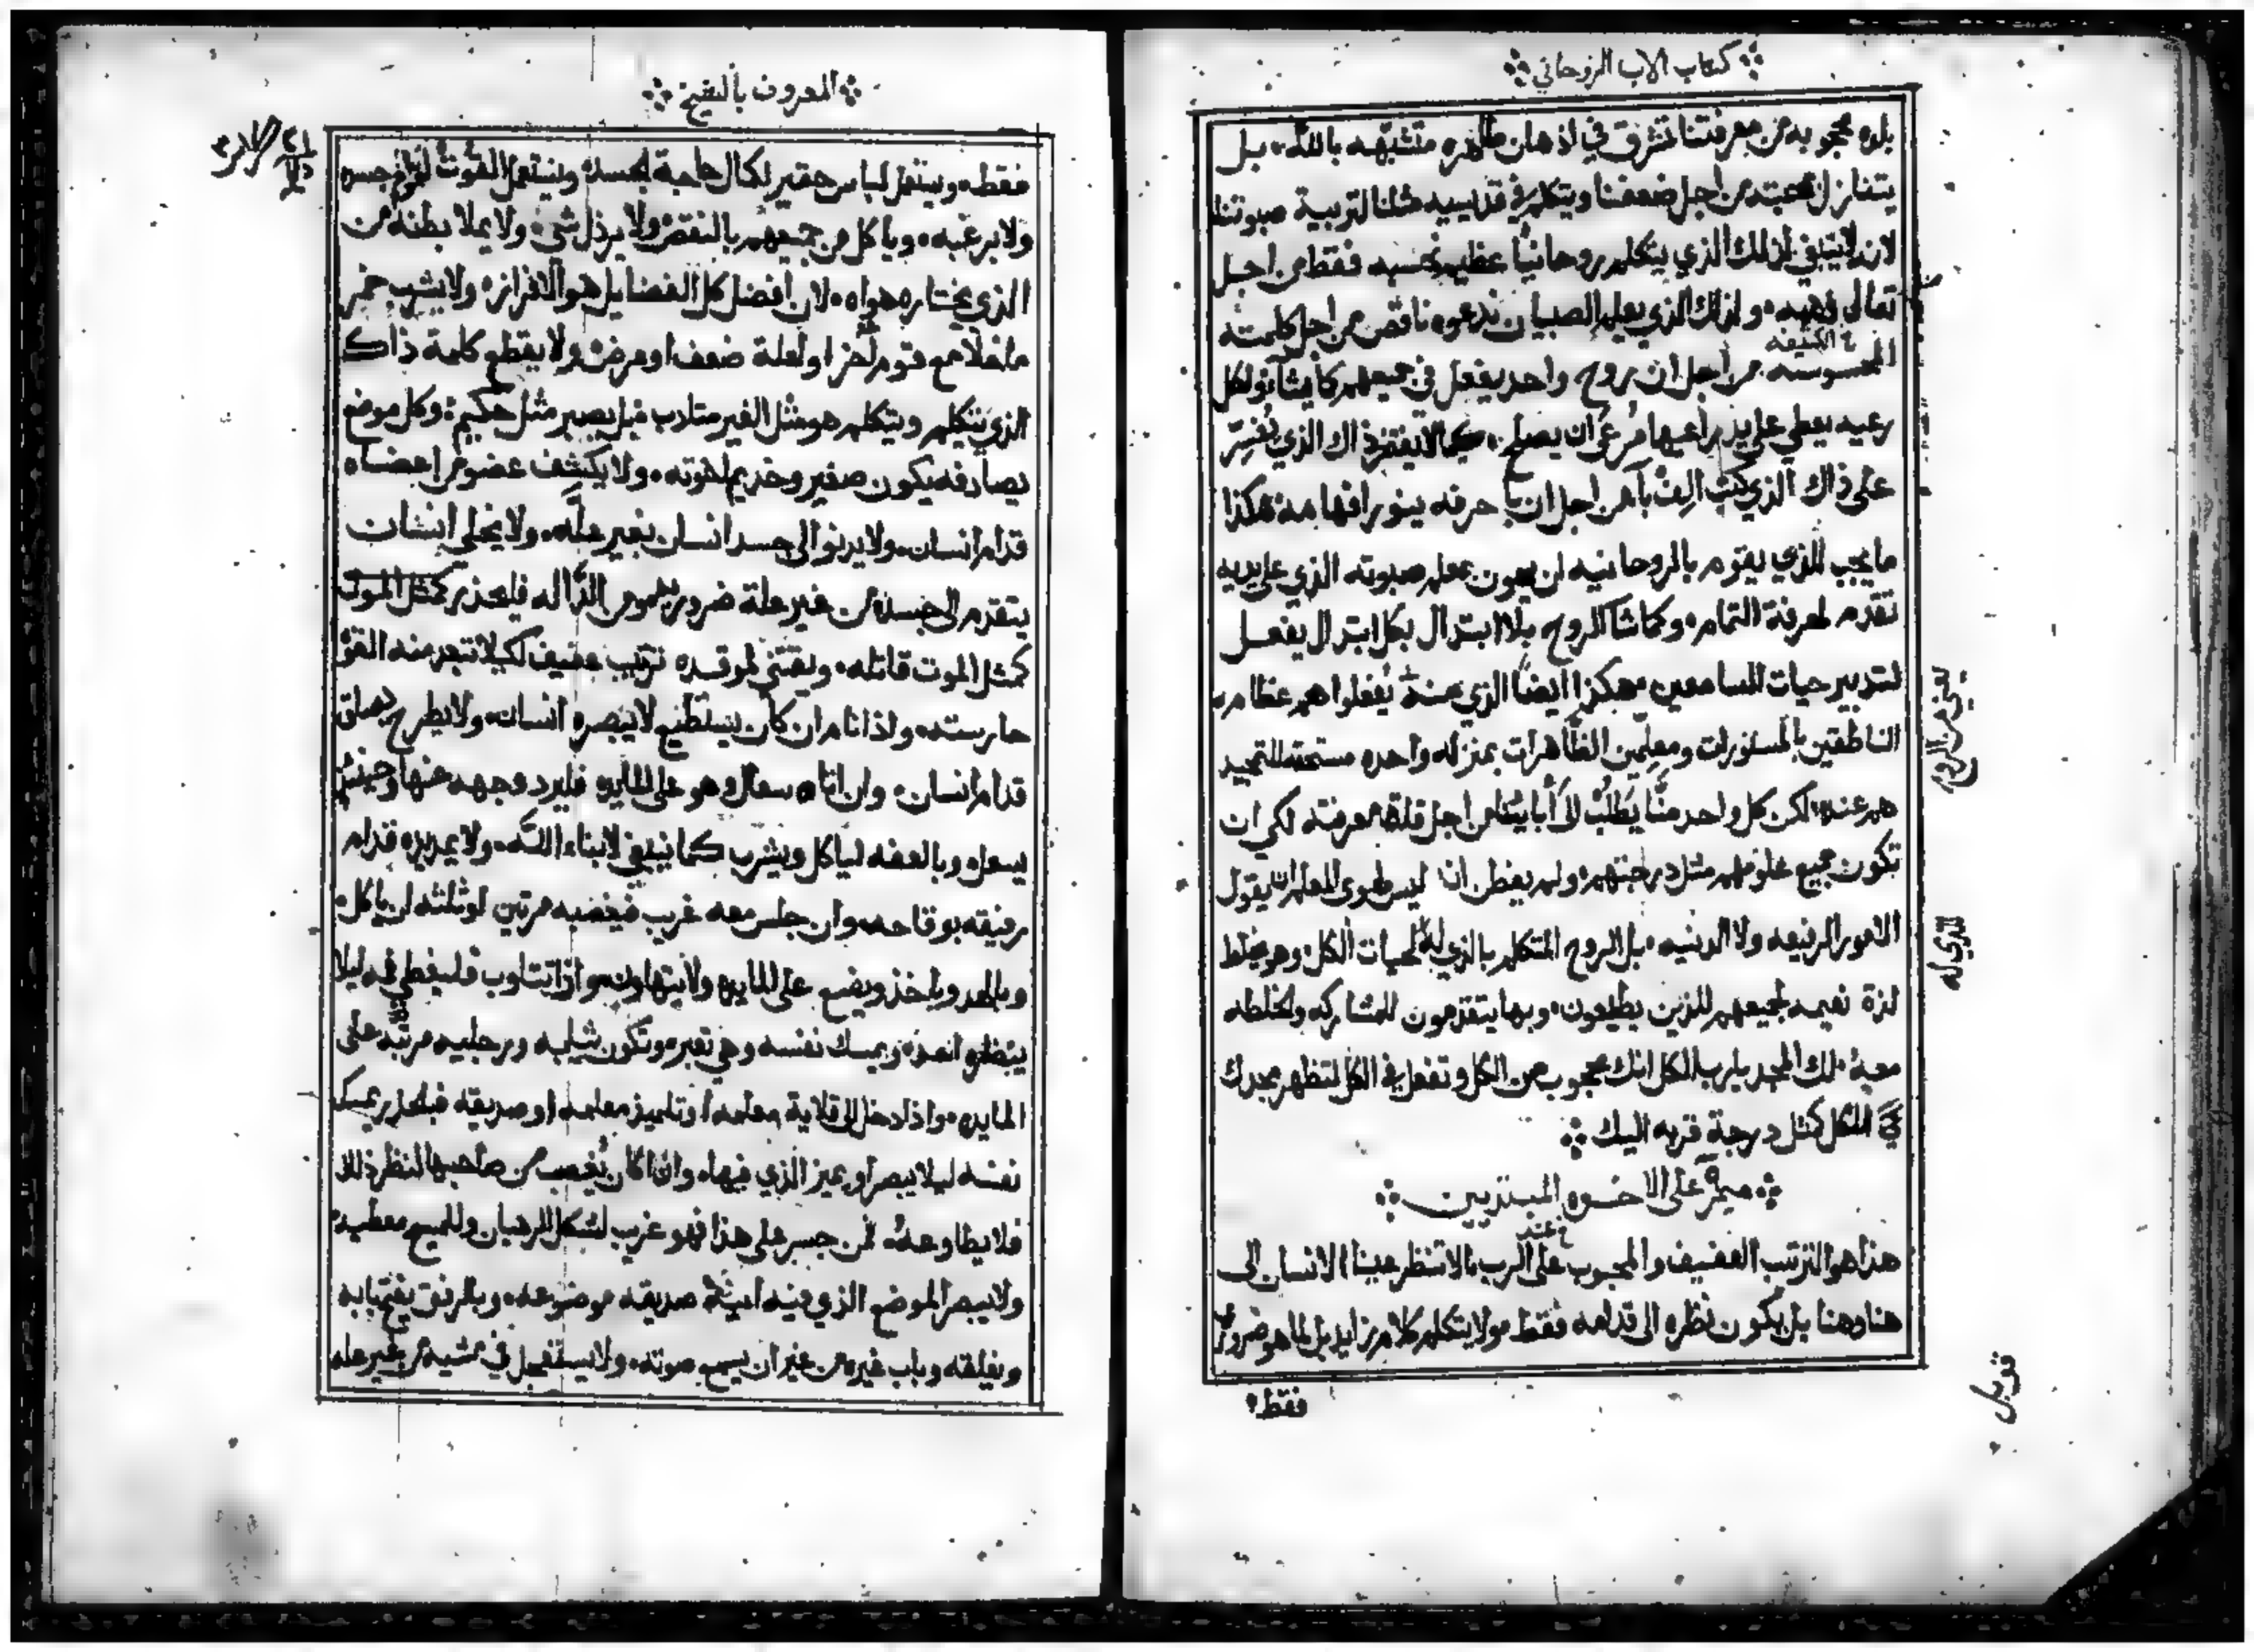 كتاب الاب الروحاني
بلده محجوبه من معرفتنا تشرق في اذهان طاهره متشبهه بالله. بل
يتنازل من اجل ضعفنا ويتكلم في قديسيه مثلنا لتربية صبوتنا
لانه لا ينبغي لذلك الذي يتكلم روحانيًا عظيم نحسبه فقط من اجل
تعالي فهمه. ولذلك الذي يعلم الصبيان ندعوه ناقص من اجل كلمته
خ الكثيفه
المحسوسه من اجل ان بروح واحد يفعل في جميعهم كما يشا. ولكل
رعيه يعطي على يد راعيها مرعى ان يصلح. كما لا يفتخر ذاك الذي يفسر
على ذاك الذي كتب الف با من اجل ان حرفه ينورافها منه هكذا
ما يجب للذي يقوم بالروحانيه ان يهون بمعلم صبوته الذي على يديه
تقدم لمعرفة التمام. وكما شا الروح بلا ابتدال بكل ابتدال يفعل
لتدبير حيات السامعين. هكذا ايضًا الذي منه يفعلوا هم عظام
الناطقين بالمستورات ومعلمين الظاهرات بمنزله واحده مستحقه للتمجيد
هم عنده. لكن كل واحد منا يطلب من اجل قلة معرفته لكي ان
تكون جميع علومهم مثل درجتهم. ولم يفطن ان ليس هوى المعلم يقول
الامور الرفيعه ولا الدنيه. بل الروح المتكلم بالذي له لحيات الكل وهو يخلط
لذة نعيمه لجميعهم للذين يطيعون. وبها يتقدمون للمشاركه ولخلطه
محبة. لك المجد يارب الكل انك محجوب من الكل وتفعل في الكل لتظهر مجدك
في الكل كمثل درجة قربه اليك
ميمر على الاخوه المبتديين
خ عند
هذا هو الترتيب العفيف والمحبوب على الرب. الا تنظر عينا الانسان الى
هنا وهنا بل يكون نظره الى قدامه فقط. ولا يتكلم كلام زايد بل لما هو ضروري
فقط
قوبل
المعروف بالشيخ
فقط. ويستعمل لباس حقير لكمال حاجة لجسده ويستعمل القوت لقوام جسده
ولا برغبه. وياكل من جميعهم بالنقص ولا يرذل شي. ولا يملا بطنه من
الذي يختاره هواه. لان افضل كل الفضايل هو الافراز. ولا يشرب خمر
ماخلا مع قوم اخر او لعلة ضعف او مرض. ولا يقطع كلمة ذاك
الذي يتكلم ويتكلم هو مثل الغير متادب بل يصير مثل حكيم. وكل موضع
يصادفه يكون صغير وخديم لاخوته. ولا يكشف عضو من اعضاه
قدام انسان. ولا يدنوا الى جسد انسان بغير علّه. ولا يخلي انسان
يتقدم الى جسده من غير علة ضروريه. ومن الدّاله فليحذر كمثل الموت
كمثل الموت قاتله. ويقتني لمرقده ترتيب عفيف لكيلا تبعد منه القوة
حارسته. واذا نام ان كان يستطيع لا يبصره انسان. ولا يطرح بصاق
قدام انسان. وان اتاه سعال وهو على المايده فليرد وجهه عنها وحينئذ
يسعل. وبالعفه لياكل ويشرب كما ينبغي لابناء الله. ولا يمد يده قدام
رفيقه بوقاحه. وان جلس معه غريب فيغصبه مرتين او ثلثه ان ياكل
وبالهدو ياخذ ويضع على المايده ولا يتهاون. واذا تتاوب فليغطي فمه ليلا
ينظروا فمه ويمسك نفسه وهي تعبر. وتكون ثيابه ورجليه مرتّبه على
المايده. واذا دخل الى قلاية معلمه او تلميذ معلمه او صديقه فليحذر بمسك
نفسه ليلا يبصر او يميز الذي فيها. وان كان يغصب من صاحبها لنظر ذلك
فلا يطاوعه. لمن جسر على هذا فهو غريب لشكل الرهبان وللمسيح معطيه
ولا يبصر الموضع الذي فيه امتعة صديقه موضوعه. وبالرفق يفتح بابه
ويغلقه وباب غيره من غير ان يسمع صوته. ولا يستعجل في مشيه من غير عله